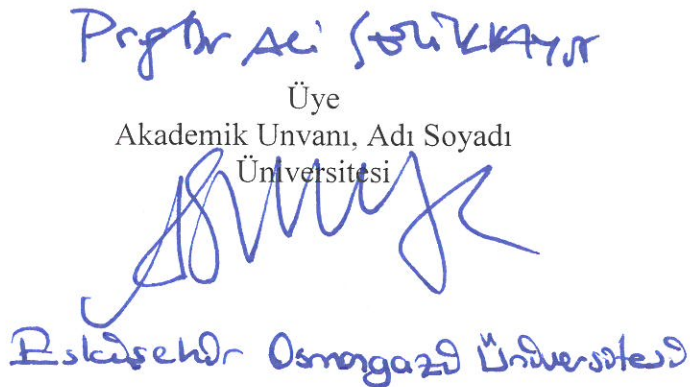 Prof Dr Ali ÇELİKKAYA
Üye
Akademik Unvanı, Adı Soyadı
Üniversitesi
Eskişehir Osmangazi Üniversitesi